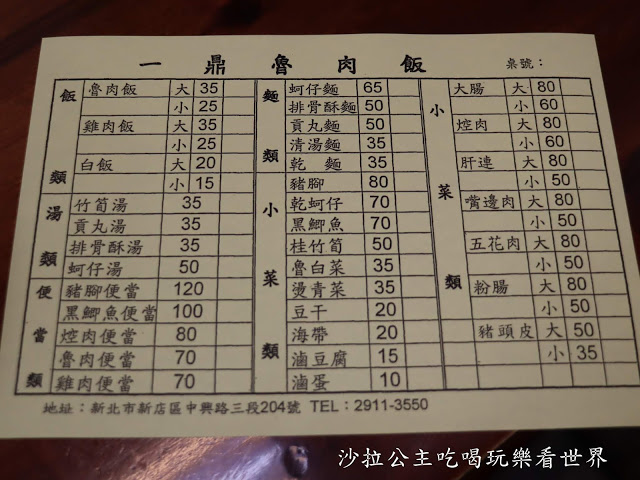 一鼎魯肉飯 桌號：
飯類
魯肉飯 大 35
小 25
雞肉飯 大 35
小 25
白飯 大 20
小 15
湯類
竹筍湯 35
貢丸湯 35
排骨酥湯 35
蚵仔湯 50
便當類
豬腳便當 120
黑鯽魚便當 100
焢肉便當 80
魯肉便當 70
雞肉便當 70
麵類
蚵仔麵 65
排骨酥麵 50
貢丸麵 50
清湯麵 35
乾麵 35
小菜類
豬腳 80
乾蚵仔 70
黑鯽魚 70
桂竹筍 50
魯白菜 35
燙青菜 35
豆干 20
海帶 20
滷豆腐 15
滷蛋 10
小菜類
大腸 大 80
小 60
焢肉 大 80
小 60
肝連 大 80
小 50
嘴邊肉 大 80
小 50
五花肉 大 80
小 50
粉腸 大 80
小 50
豬頭皮 大 50
小 35
地址：新北市新店區中興路三段204號 TEL：2911-3550
沙拉公主吃喝玩樂看世界